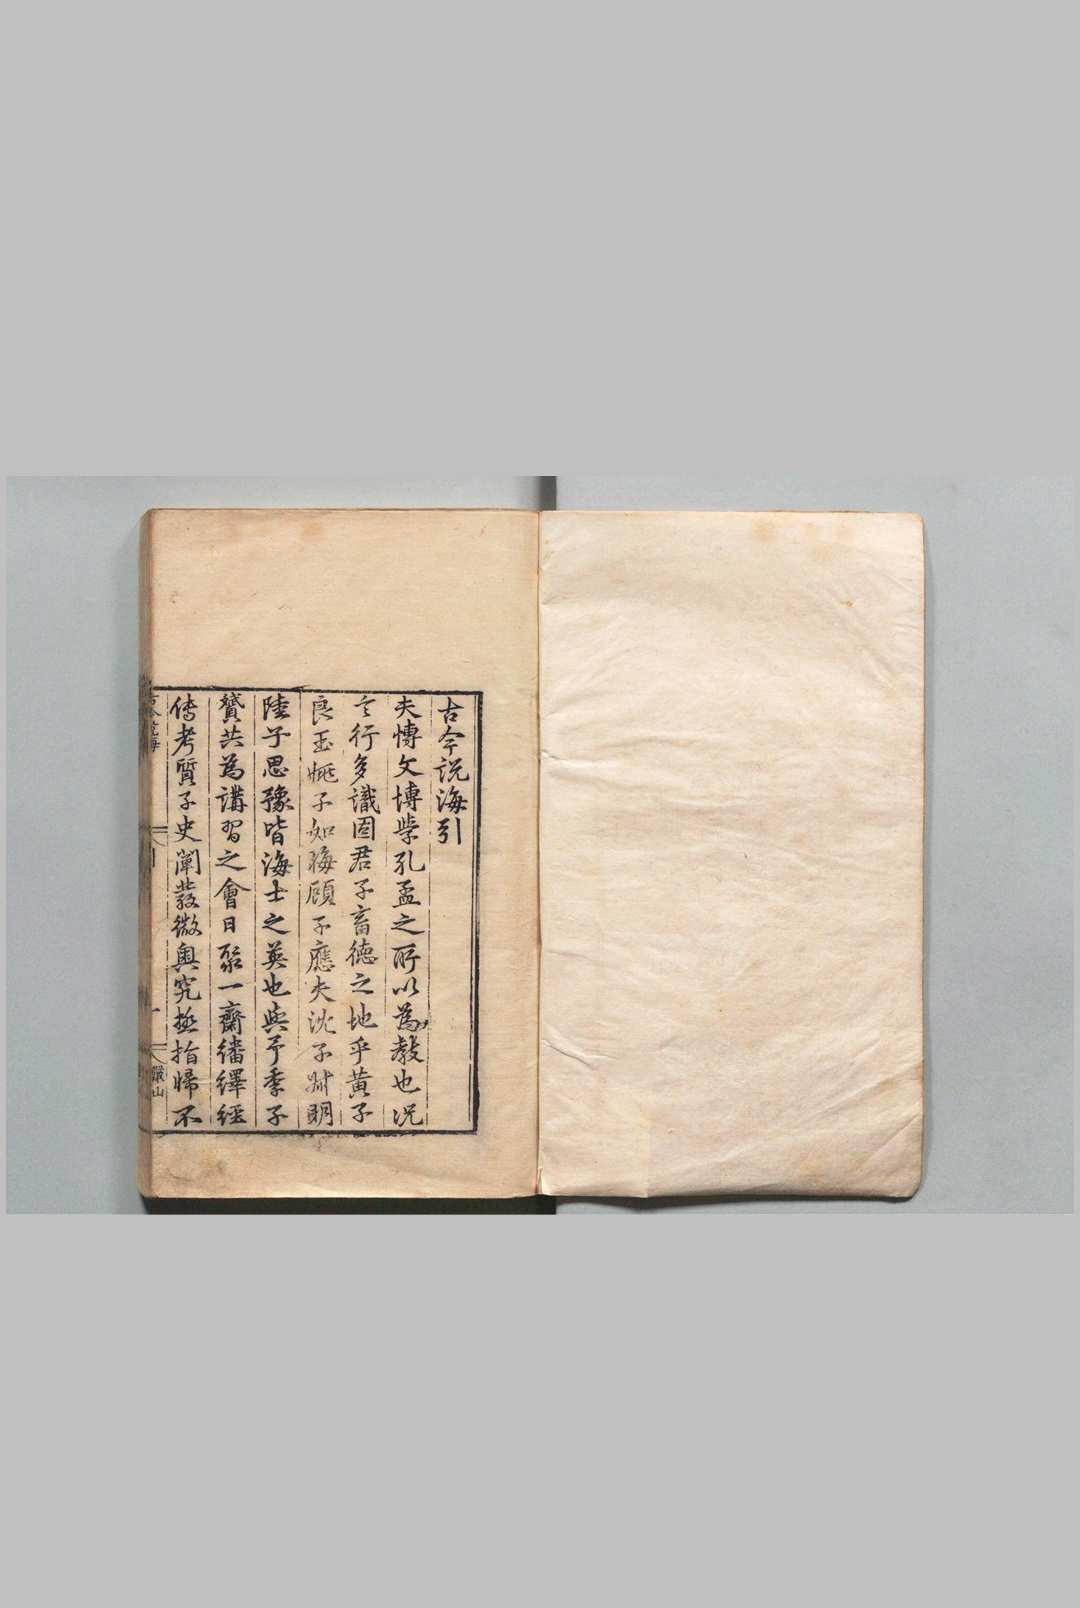 古今說海引
夫博文博學孔孟之所以為教也況
言行多識固君子畜德之地乎黃子
良玉姚子如晦顧子應夫沈子
明
陸子思豫皆海士之英也與予季子
贊共為講習之會日聚一齋繙繹經
傳考質子史闡發微奧究極指歸不
古今說海
引
一
儼山